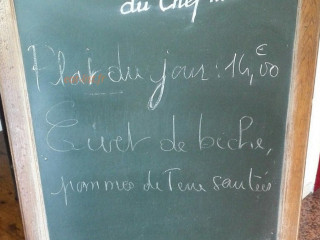 du Chef...
Plat du jour : 14,€00
Civet de biche,
pommes de Terre sautées